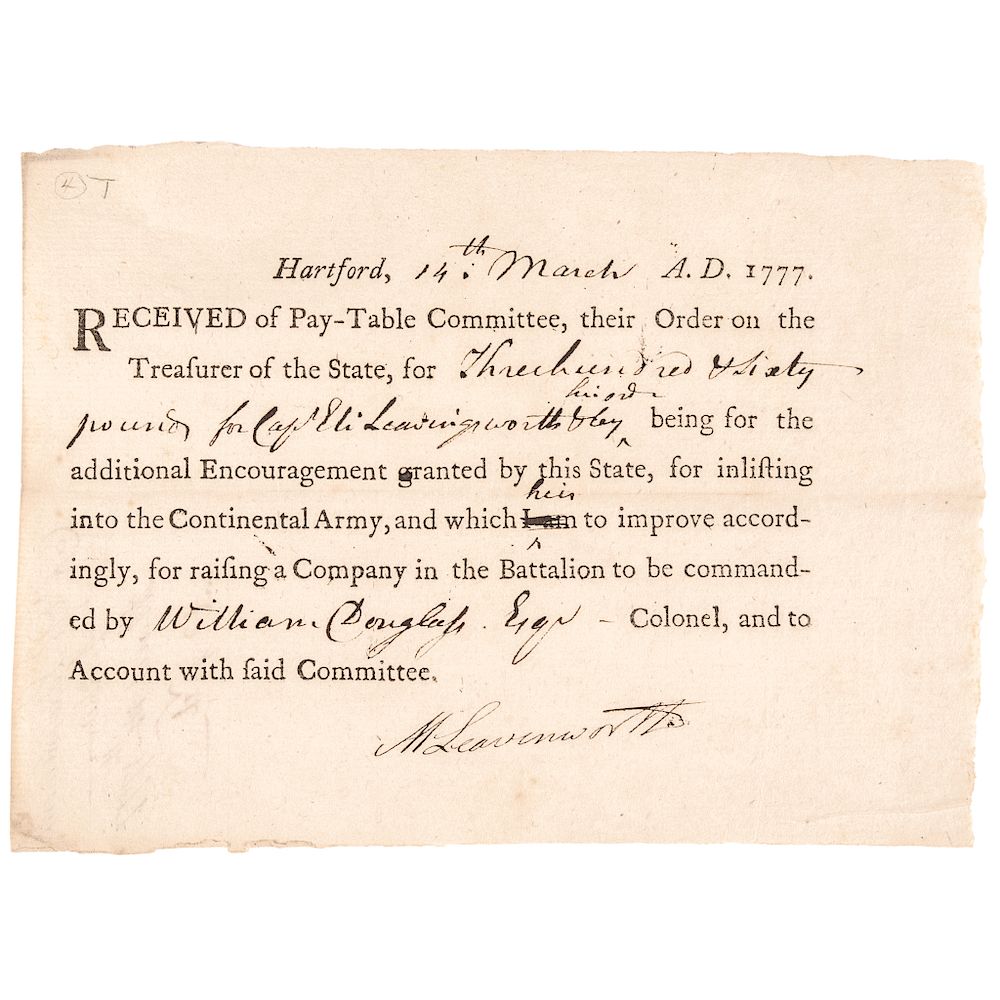 4 T
Hartford, 14th. March A. D. 1777.
RECEIVED of Pay-Table Committee, their Order on the
Treaſurer of the State, for Threehundred & Sixty
his ord
pounds for Capt Eli Leavingsworth & by ‸ being for the
additional Encouragement granted by this State, for inliſting
he is
into the Continental Army, and which I am ‸ to improve accord-
ingly, for raiſing a Company in the Battalion to be command-
ed by William Douglaſs Esqr - Colonel, and to
Account with ſaid Committee.
M Leavenworth